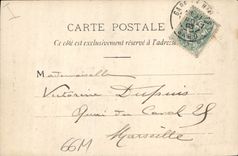 CARTE POSTALE
Ce côté est exclusivement réservé à l'adresse
Mademoiselle
Victorine Dupuis
Quai du Canal 25
Marseille
66M